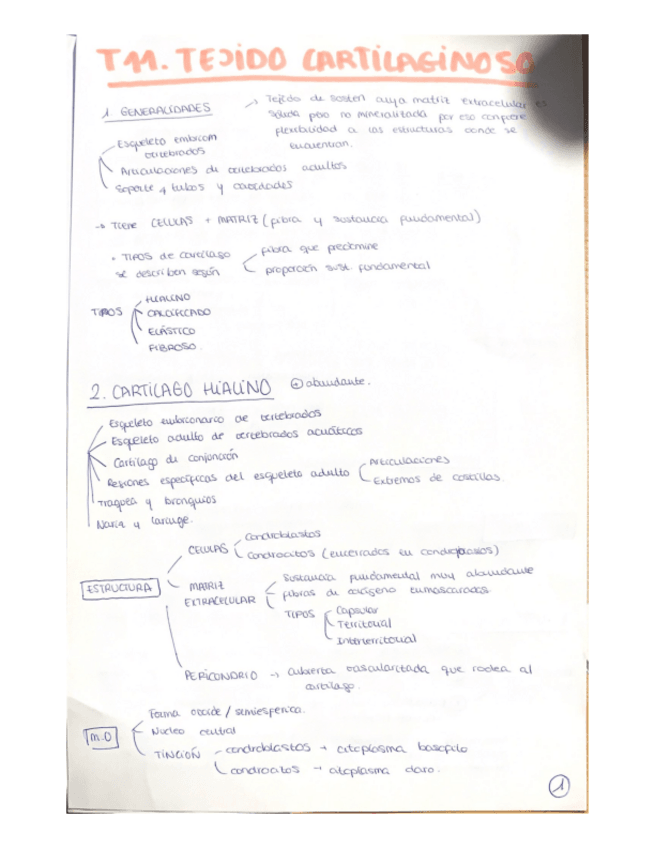 T11. TEJIDO CARTILAGINOSO
1 GENERALIDADES
→ Tejido de sostén cuya matriz extracelular es
sólida pero no mineralizada por eso confiere
flexibilidad a las estructuras donde se
encuentran.
Esqueleto embrion
vertebrados
Articulaciones de vertebrados adultos
Soporte y tubos y cavidades
→ Tiene CELULAS + MATRIZ (fibra y sustancia fundamental)
• TIPOS de cartílago
se describen según
fibra que predomine
proporción sust. fundamental
TIPOS
HIALINO
CALCIFICADO
ELÁSTICO
FIBROSO.
2. CARTILAGO HIALINO ⊕ abundante.
Esqueleto embrionario de vertebrados
Esqueleto adulto de vertebrados acuáticos
Cartílago de conjunción
Regiones específicas del esqueleto adulto
Articulaciones
Extremos de costillas.
Traquea y bronquios
Nariz y laringe.
ESTRUCTURA
CELULAS
Condroblastos
Condrocitos (encerrados en condroplastos)
MATRIZ
EXTRACELULAR
Sustancia fundamental muy abundante
fibras de colágeno enmascaradas
TIPOS
Capsular
Territorial
Interterritorial
PERICONDRIO → cubierta vascularizada que rodea al
cartílago.
M.O
Forma ovoide / semiesférica.
Nucleo central
TINCIÓN
condroblastos → citoplasma basófilo
condrocitos → citoplasma claro.
1